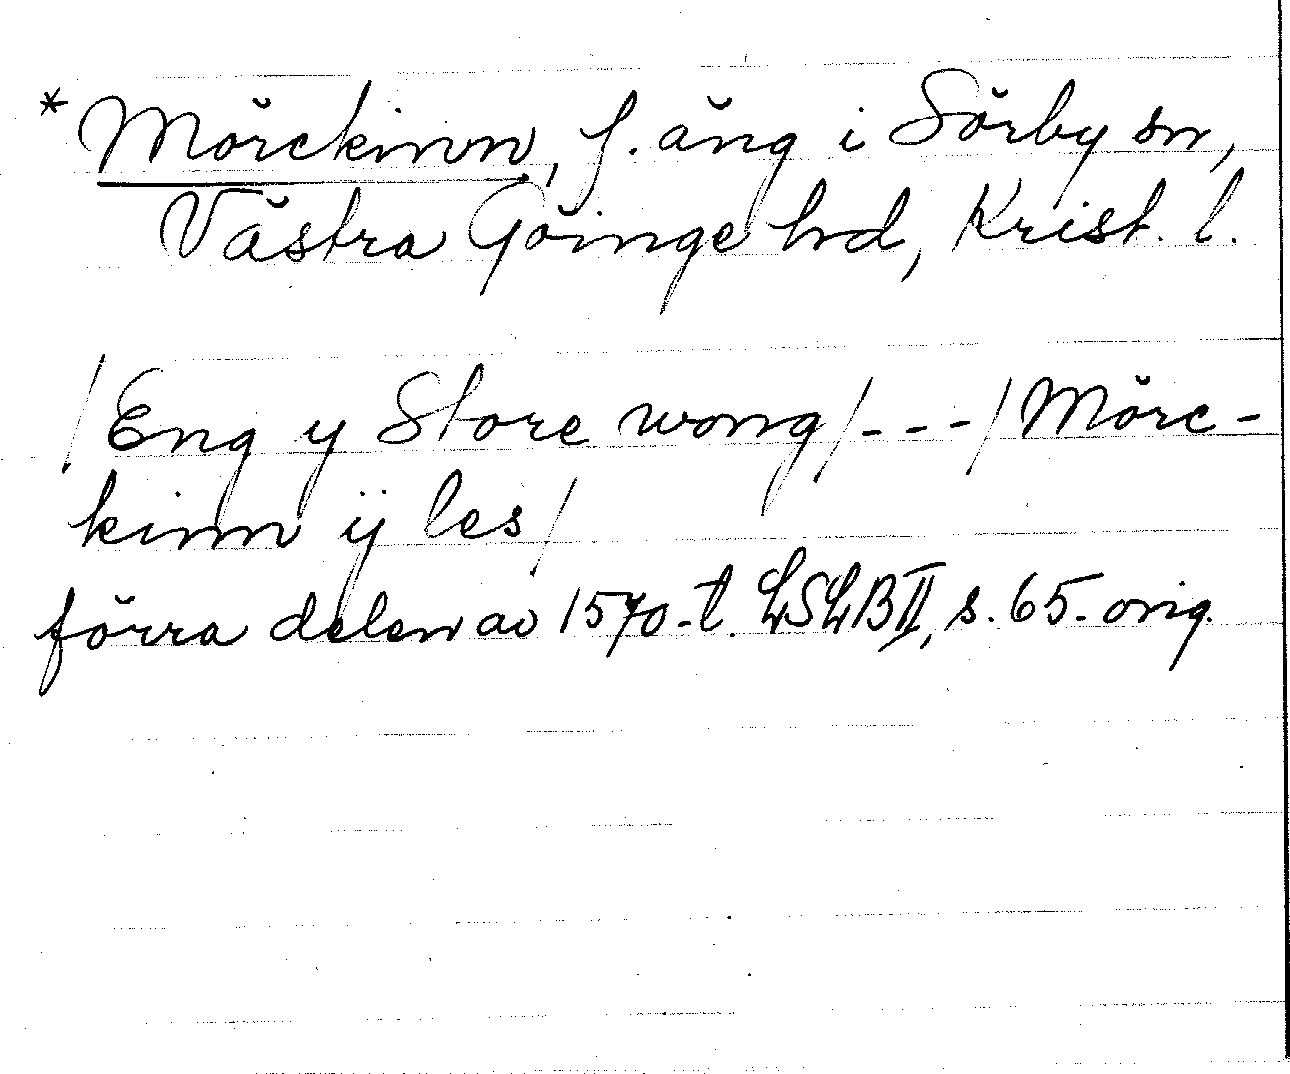 * Mörckinn, f. äng i Sörby sn,
Västra Göinge hd, Krist. l.
/Eng y Store wong/---/Mörc-
kinn ÿ les/
förra delen av 1570-t. LSLB II, s. 65. orig.